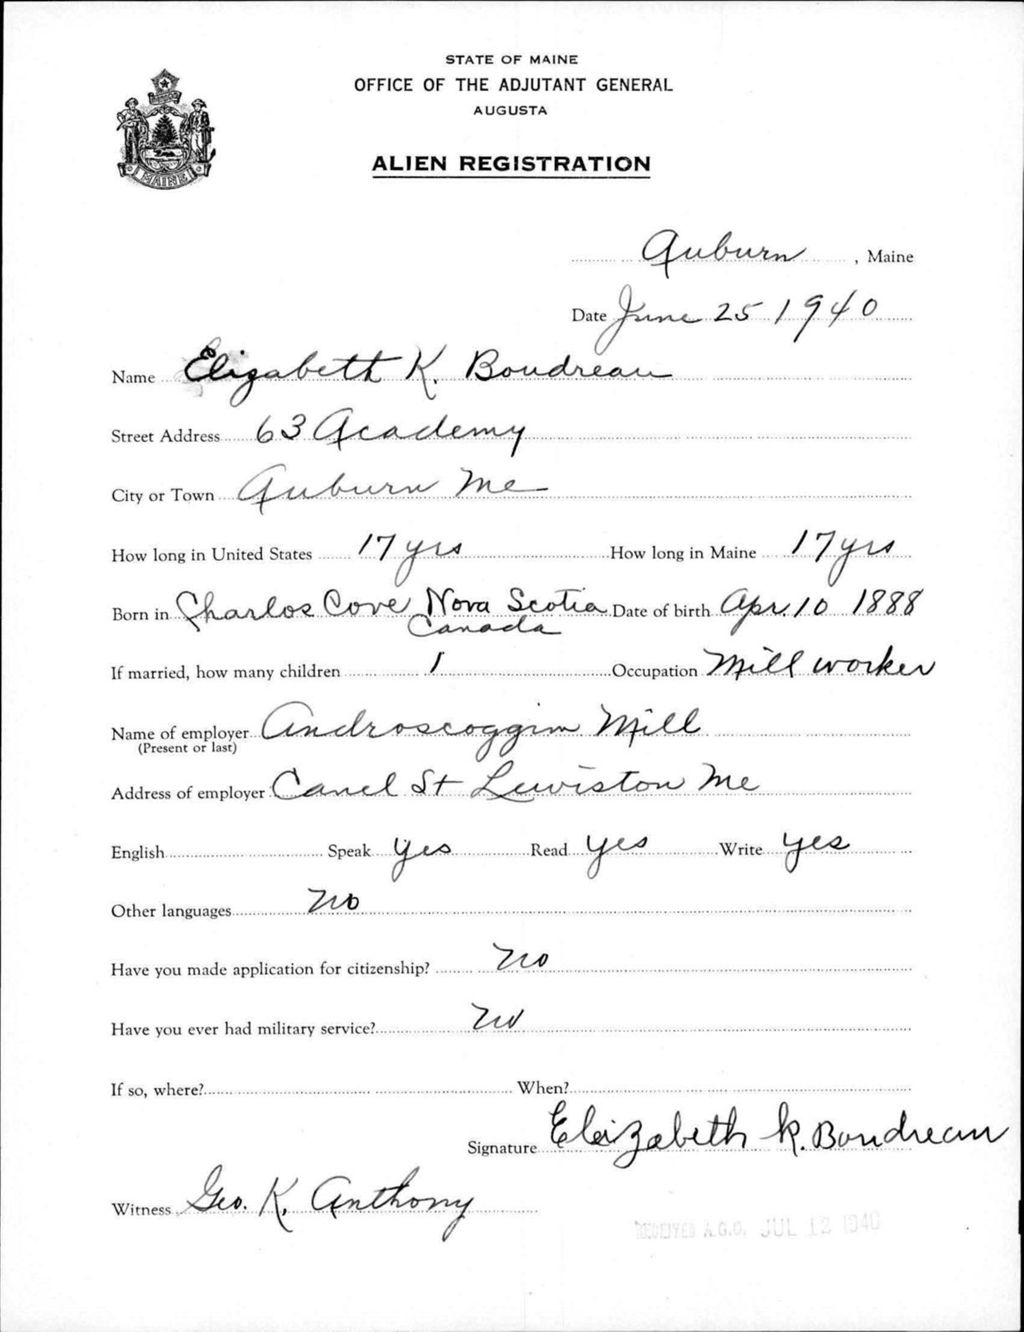 STATE OF MAINE
OFFICE OF THE ADJUTANT GENERAL
AUGUSTA
ALIEN REGISTRATION
MAINE
Auburn, Maine
Date June 25 1940
Name Elizabeth K. Boudreau
Street Address 63 Academy
City or Town Auburn Me
How long in United States 17 yrs How long in Maine 17 yrs
Born in Charlos Cove Nova Scotia Date of birth Apr. 10 1888
Canada
If married, how many children 1 Occupation Mill worker
Name of employer Androscoggin Mill
(Present or last)
Address of employer Canel St Lewiston Me
English Speak Yes Read Yes Write Yes
Other languages No
Have you made application for citizenship? No
Have you ever had military service? No
If so, where? When?
Signature Elizabeth K. Boudreau
Witness Geo. K. Anthony
RECEIVED A.G.O. JUL 12 1940